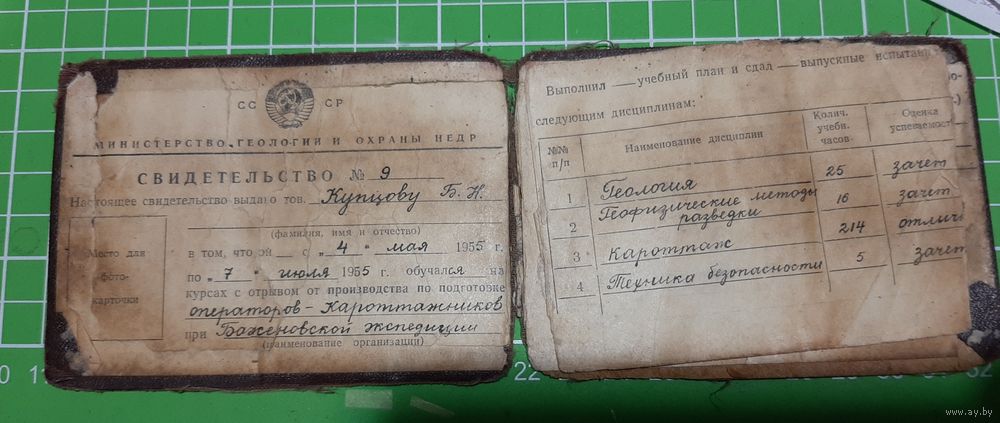 СС СР
МИНИСТЕРСТВО ГЕОЛОГИИ И ОХРАНЫ НЕДР
СВИДЕТЕЛЬСТВО № 9
Настоящее свидетельство выдано тов. Купцову Б. Н.
(фамилия, имя и отчество)
в том, что он с „4" мая 1955 г.
по „7" июля 1955 г. обучался на
курсах с отрывом от производства по подготовке
операторов-Кароттажников
при Баженовской экспедиции
(наименование организации)
Место для
фото-
карточки
Выполнил — учебный план и сдал — выпускные испытан
следующим дисциплинам:
№№ п/п Наименование дисциплин Колич. учебн. часов Оценка успеваемост
1 Геология 25 зачет
2 Геофизические методы разведки 16 зачет
3 Кароттаж 214 отличн
4 Техника безопасности 5 зачет
22
www.ay.by